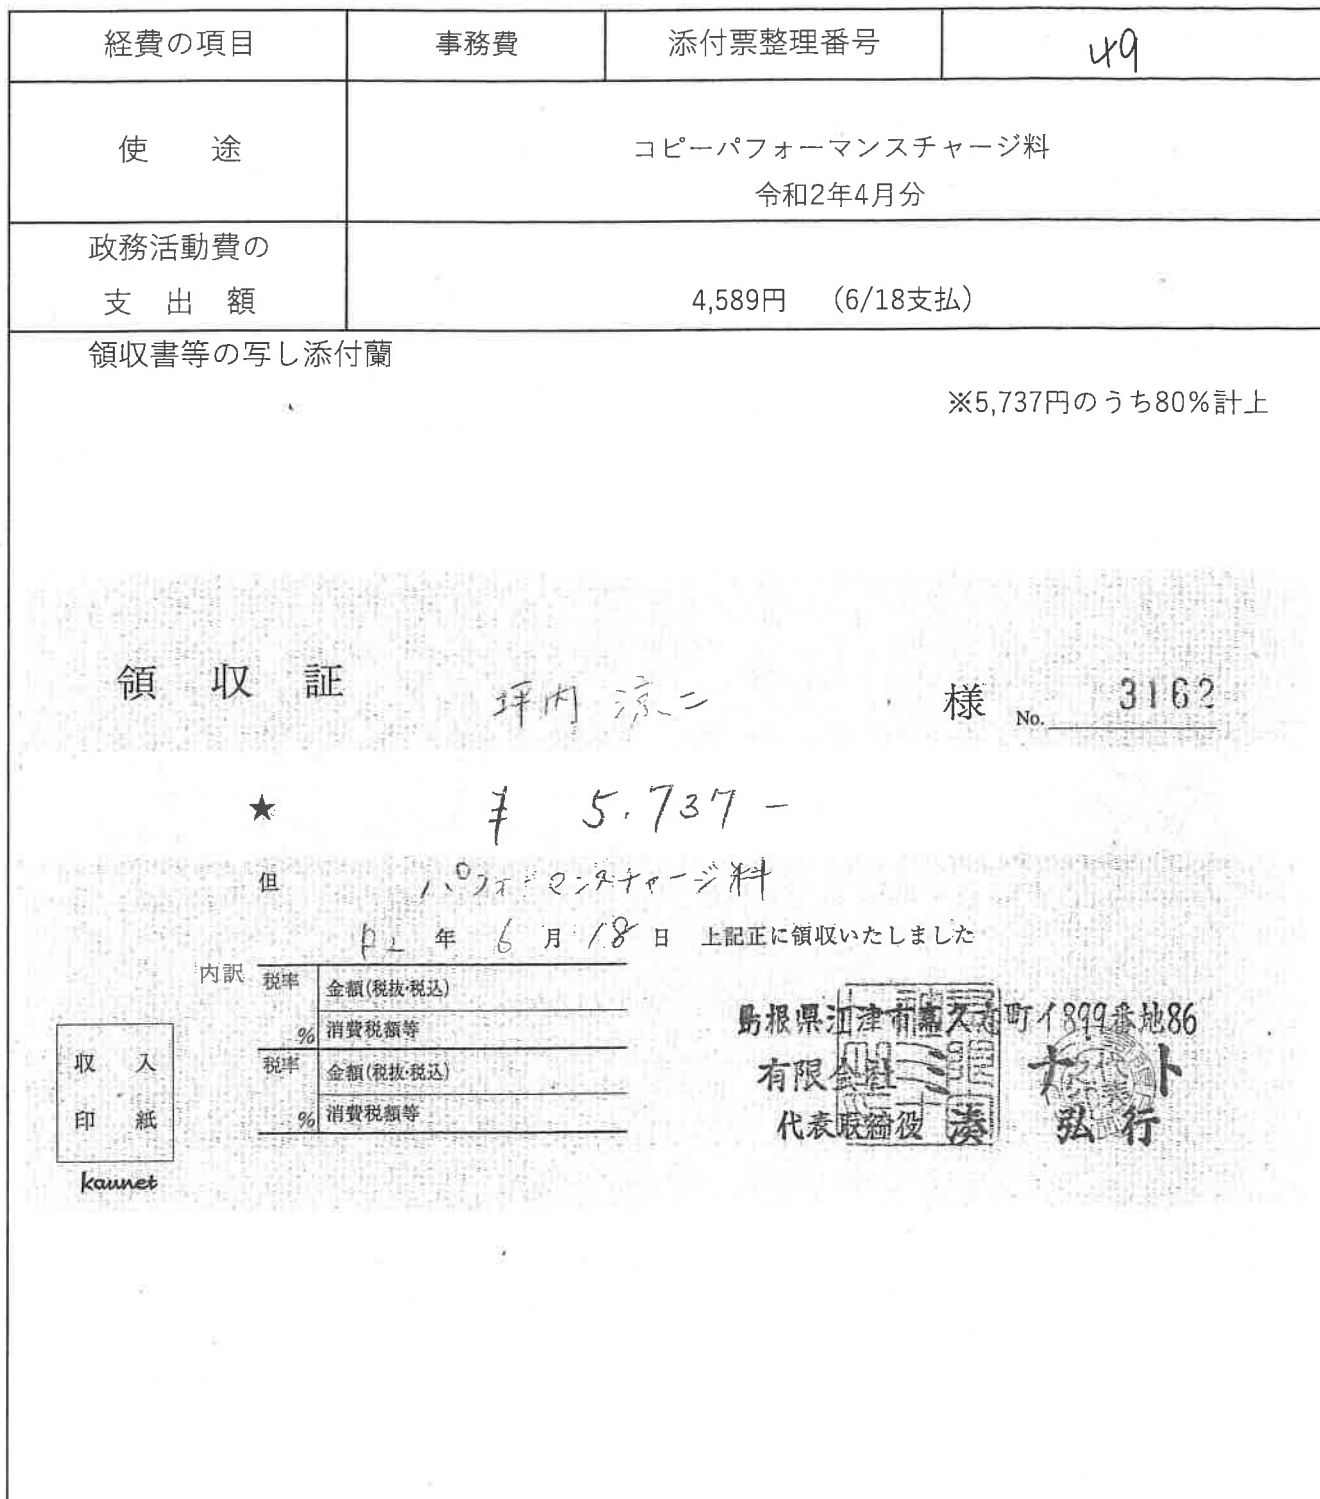 経費の項目 事務費 添付票整理番号 49
使 途 コピーパフォーマンスチャージ料
令和2年4月分
政務活動費の
支 出 額 4,589円 （6/18支払）
領収書等の写し添付蘭
※5,737円のうち80%計上
領 収 証 坪内 涼二 様 No. 3162
★ ¥ 5.737-
但 パフォーマンスチャージ料
R2 年 6 月 18 日 上記正に領収いたしました
内訳 税率 金額(税抜・税込)
% 消費税額等
税率 金額(税抜・税込)
% 消費税額等
収 入
印 紙
kaunet
島根県江津市嘉久志町イ899番地86
有限会社 ナ ト
代表取締役 湊 弘行